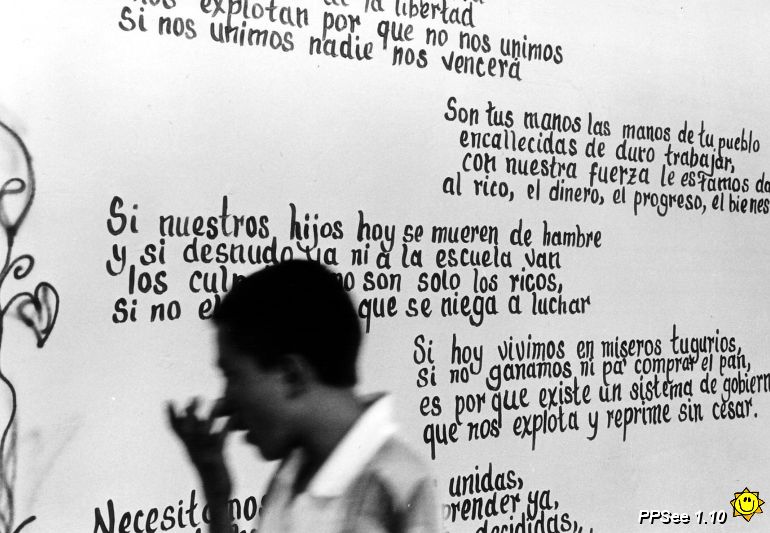 explotan por que no nos unimos
Si nos unimos nadie nos vencera
Son tus manos las manos de tu pueblo
encallecidas de duro trabajar,
con nuestra fuerza le estamos
al rico, el dinero, el progreso, el
Si nuestros hijos hoy se mueren de hambre
y si desnudo ni a la escuela van
los son solo los ricos,
Si no que se niega a luchar
Si hoy vivimos en miseros tugurios,
si no ganamos ni pa' comprar el pan,
es por que existe un sistema de
que nos explota y reprime sin cesar.
unidas,
ya,
decididas,
PPSee 1.10